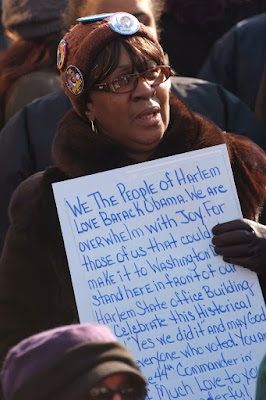 WE THE PEOPLE OF HARLEM
LOVE BARACK OBAMA. WE ARE
OVERWHELM WITH JOY FOR
THOSE OF US THAT COULD
MAKE IT TO WASHINGTON
STAND HERE IN FRONT OF OUR
HARLEM STATE OFFICE BUILDING
CELEBRATE THIS HISTORICAL
YES WE DID IT AND MAY GOD
EVERYONE WHO VOTED. YOU ARE
44th COMMANDER IN
MUCH LOVE TO YO